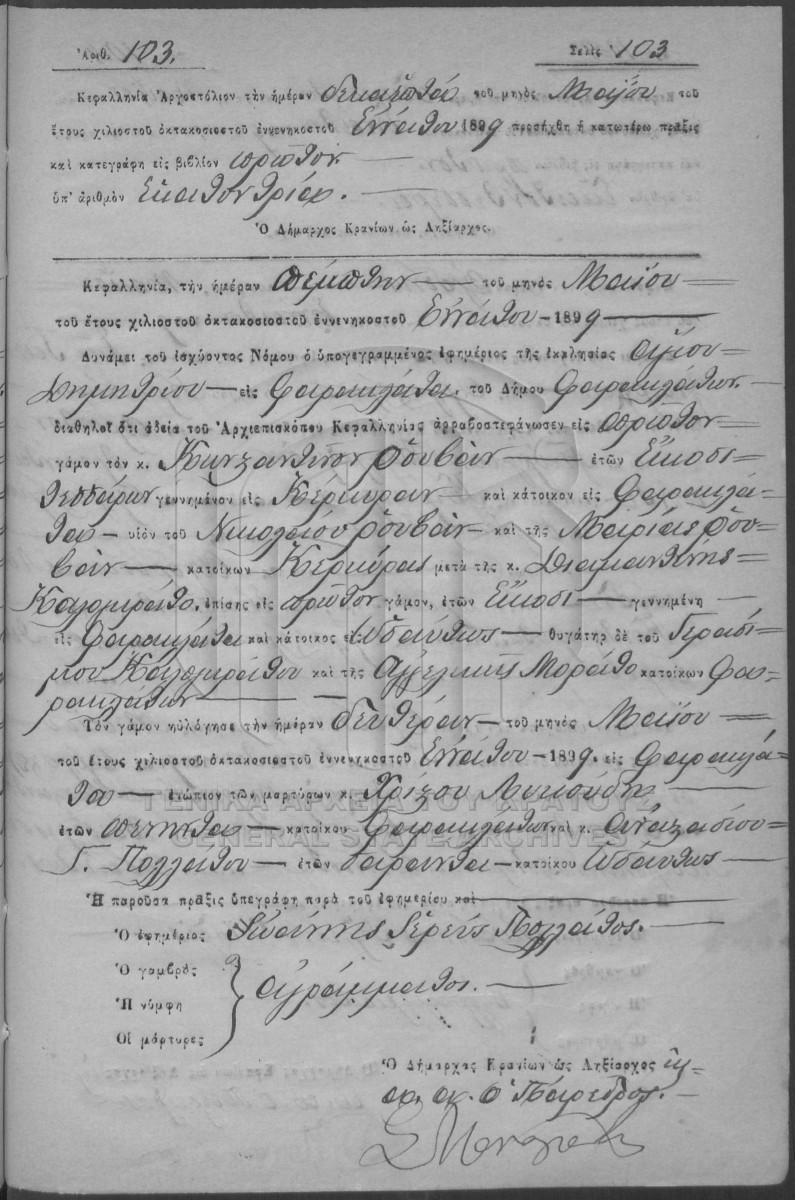 Ἀριθ. 103. Σελὶς 103
Κεφαλληνία Ἀργοστόλιον τὴν ἡμέραν δεκαεπτά τοῦ μηνὸς Μαΐου τοῦ
ἔτους χιλιοστοῦ ὀκτακοσιοστοῦ ἐννενηκοστοῦ Ἐννάτου 1899 προσήχθη ἡ κατωτέρω πρᾶξις
καὶ κατεγράφη εἰς βιβλίον πρῶτον —
ὑπ' ἀριθμὸν Ἑκατὸν τρία. —
Ὁ Δήμαρχος Κρανίων ὡς Ληξίαρχος.
Κεφαλληνία, τὴν ἡμέραν πέμπτην — τοῦ μηνὸς Μαΐου =
τοῦ ἔτους χιλιοστοῦ ὀκτακοσιοστοῦ ἐννενηκοστοῦ Ἐννάτου — 1899 —
Δυνάμει τοῦ ἰσχύοντος Νόμου ὁ ὑπογεγραμμένος ἐφημέριος τῆς ἐκκλησίας Ἁγίου =
Δημητρίου — εἰς Φαρακλάτα. τοῦ Δήμου Φαρακλάτων. —
διαθηλοῖ ὅτι ἀδεία τοῦ Ἀρχιεπισκόπου Κεφαλληνίας ἀρραβοστεφάνωσεν εἰς πρῶτον —
γάμον τὸν κ. Κωνσταντῖνον Ῥουβὰν — ἐτῶν Εἴκοσι
τεσσάρων γεννημένον εἰς Κέρκυραν — καὶ κάτοικον εἰς Φαρακλά-
τα — υἱὸν τοῦ Νικολάου Ῥουβὰν — καὶ τῆς Μαρίας Ῥου-
βὰν — κατοίκων Κερκύρας μετὰ τῆς κ. Διαμαντίνης =
Καλογηράτο, ἐπίσης εἰς πρῶτον γάμον, ἐτῶν Εἴκοσι — γεννημένη —
εἰς Φαρακλάτα καὶ κάτοικος εἰς ὡσαύτως — θυγάτηρ δὲ τοῦ Γερασί-
μου Καλογηράτου καὶ τῆς Ἀγγελικῆς Μοράτο κατοίκων Φα-
ρακλάτων —
Τὸν γάμον ηὐλόγησε τὴν ἡμέραν δευτέραν — τοῦ μηνὸς Μαΐου =
τοῦ ἔτους χιλιοστοῦ ὀκτακοσιοστοῦ ἐννενηκοστοῦ Ἐννάτου — 1899. εἰς Φαρακλά-
τα — ἐνώπιον τῶν μαρτύρων κ. Χρίστου Λυκούδη —
ἐτῶν πενήντα — κατοίκου Φαρακλάτων καὶ κ. Ἀναστασίου —
Γ. Πολλάτου — ἐτῶν σαράντα — κατοίκου ὡσαύτως —
ΓΕΝΙΚΑ ΑΡΧΕΙΑ ΤΟΥ ΚΡΑΤΟΥΣ
GENERAL STATE ARCHIVES
Ἡ παροῦσα πρᾶξις ὑπεγράφη παρὰ τοῦ ἐφημερίου καὶ —
Ὁ ἐφημέριος Ἰωάννης Ἱερεὺς Πολλάτος. —
Ὁ γαμβρὸς
Ἡ νύμφη ἀγράμματοι. —
Οἱ μάρτυρες
Ὁ Δήμαρχος Κρανίων ὡς Ληξίαρχος
ὁ Πάρεδρος. —